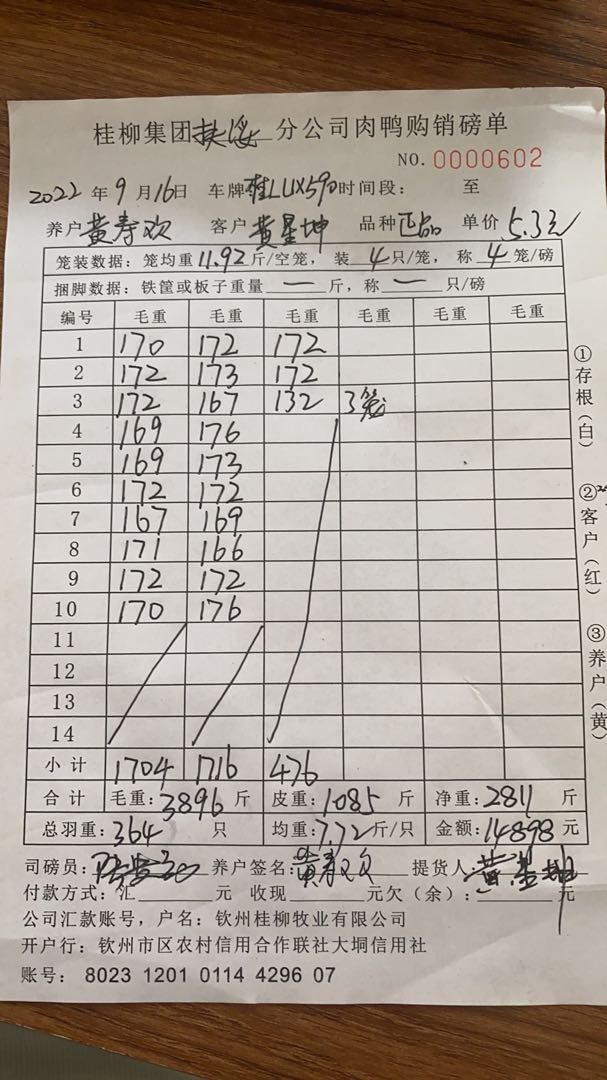 桂柳集团扶绥分公司肉鸭购销磅单
NO.0000602
2022年9月16日 车牌桂LUX590时间段: 至
养户黄寿欢 客户黄星坤 品种正品 单价5.3元
笼装数据: 笼均重11.92斤/空笼, 装4只/笼, 称4笼/磅
捆脚数据: 铁筐或板子重量一斤, 称一只/磅
编号 毛重 毛重 毛重 毛重 毛重 毛重
1 170 172 172
2 172 173 172
3 172 167 132 3笼
4 169 176
5 169 173
6 172 172
7 167 169
8 171 166
9 172 172
10 170 176
11
12
13
14
小计 1704 1716 476
合计 毛重:3896斤 皮重:1085斤 净重:2811斤
总羽重:364只 均重:7.72斤/只 金额:14898元
司磅员: 养户签名:黄寿欢 提货人:黄星坤
付款方式:汇 元 收现 元欠(余): 元
公司汇款账号, 户名: 钦州桂柳牧业有限公司
开户行: 钦州市区农村信用合作联社大垌信用社
账号: 8023 1201 0114 4296 07
①存根(白)
②客户(红)
③养户(黄)